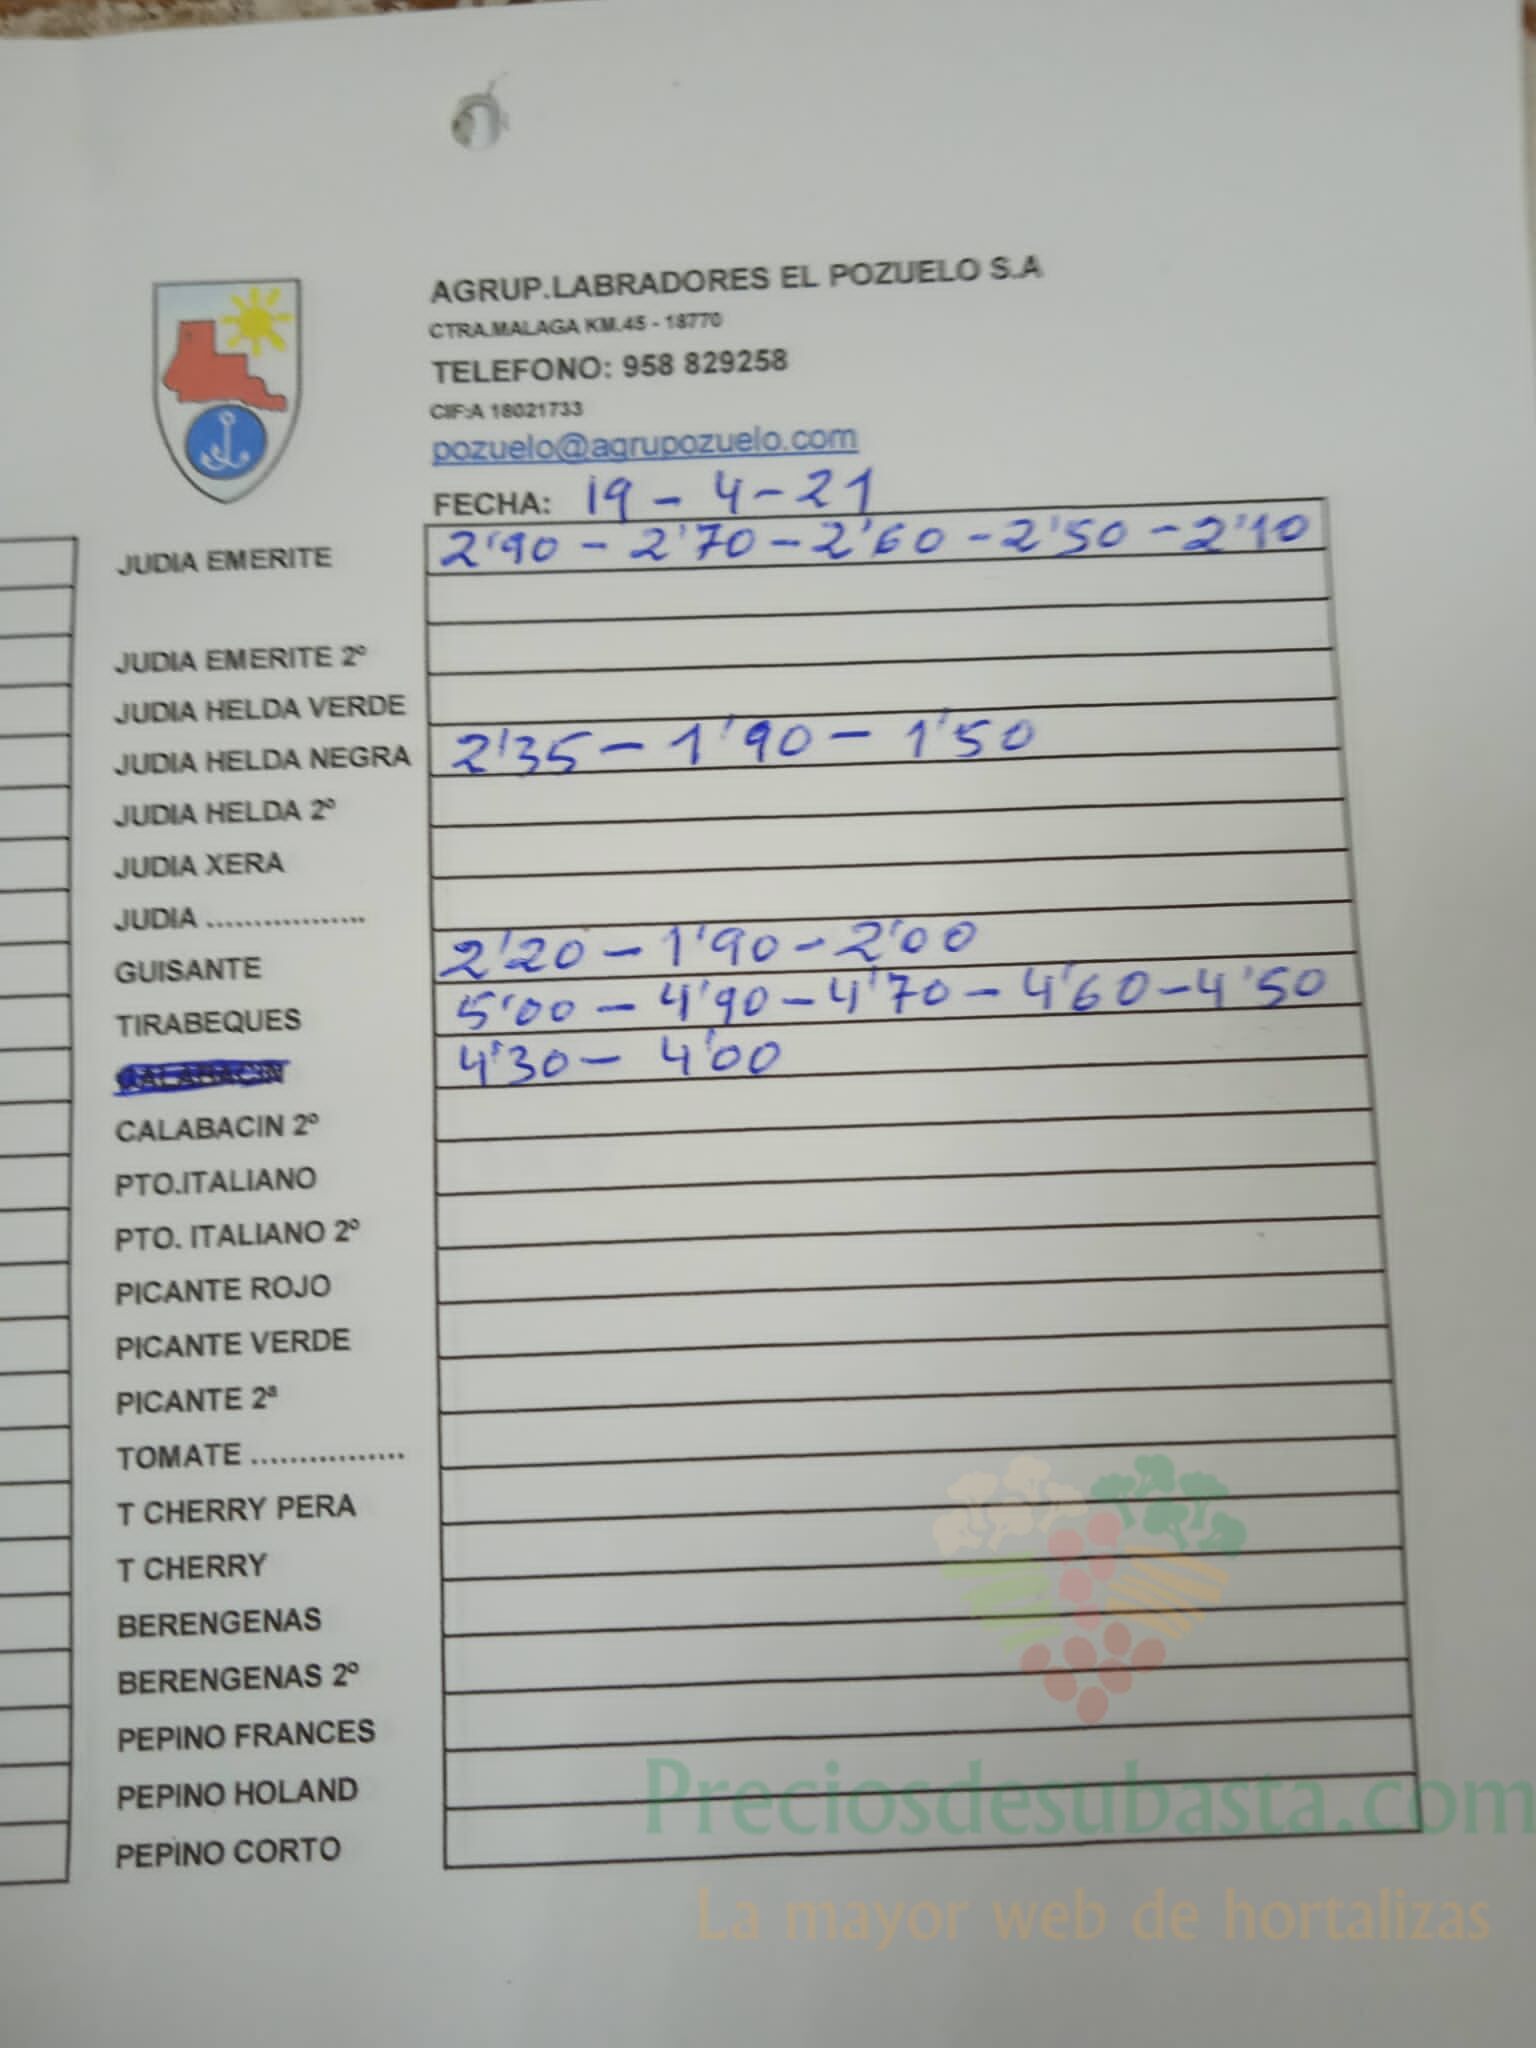 AGRUP.LABRADORES EL POZUELO S.A
CTRA.MALAGA KM.45 - 18770
TELEFONO: 958 829258
CIF:A 18021733
pozuelo@agrupozuelo.com
FECHA: 19 - 4 - 21
JUDIA EMERITE 2'90 - 2'70 - 2'60 - 2'50 - 2'10
JUDIA EMERITE 2º
JUDIA HELDA VERDE
JUDIA HELDA NEGRA 2'35 - 1'90 - 1'50
JUDIA HELDA 2º
JUDIA XERA
JUDIA .................
GUISANTE 2'20 - 1'90 - 2'00
TIRABEQUES 5'00 - 4'90 - 4'70 - 4'60 - 4'50
CALABACIN 4'30 - 4'00
CALABACIN 2º
PTO.ITALIANO
PTO. ITALIANO 2º
PICANTE ROJO
PICANTE VERDE
PICANTE 2ª
TOMATE ................
T CHERRY PERA
T CHERRY
BERENGENAS
BERENGENAS 2º
PEPINO FRANCES
PEPINO HOLAND
PEPINO CORTO
Preciosdesubasta.com
La mayor web de hortalizas